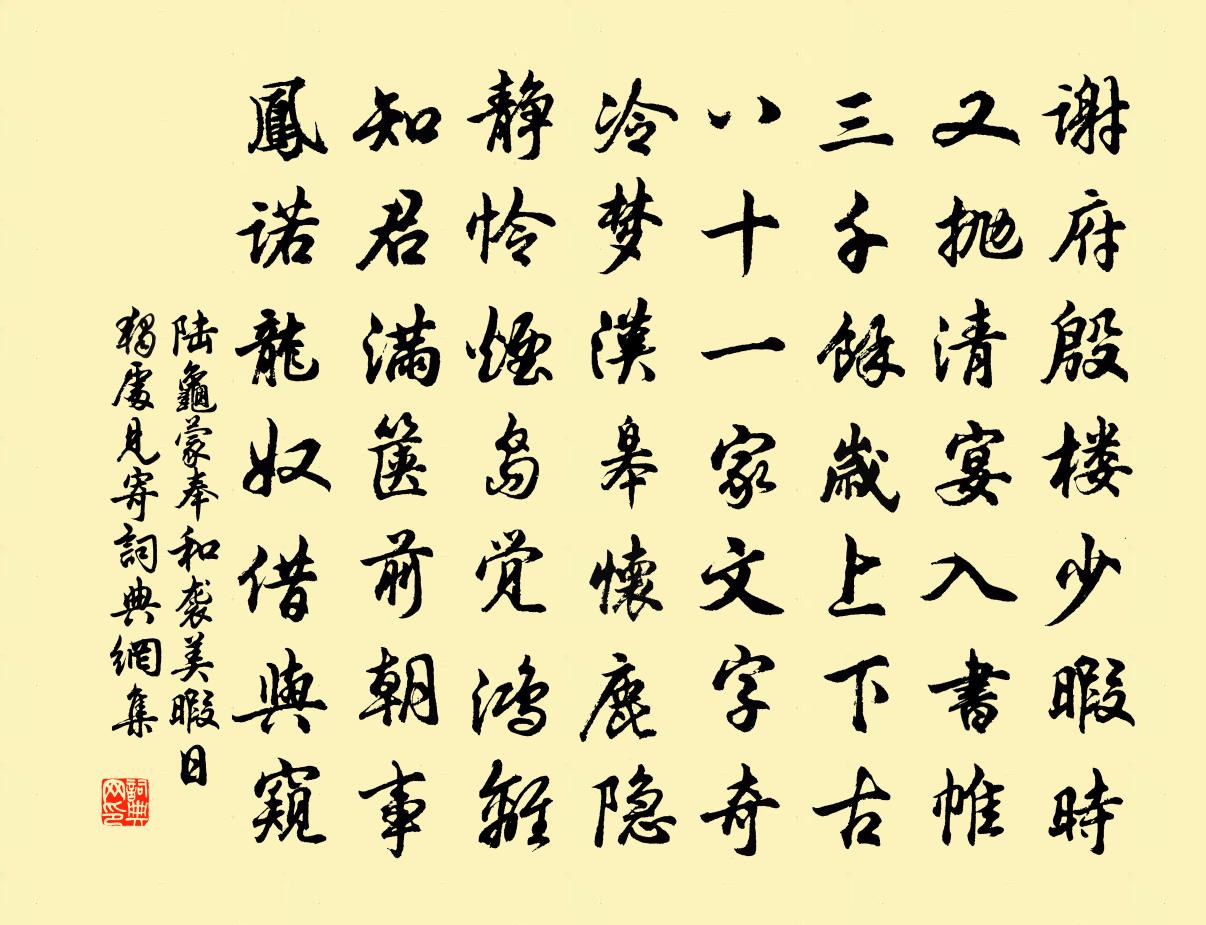 谢府殷楼少暇時
又抛清宴入書帷
三千餘歲上下古
八十一家文字奇
冷梦汉皋懷鹿隐
静怜煙岛觉鸿離
知君满箧前朝事
鳳诺龍奴借與窺
陆龜蒙奉和袭美暇日
獨處見寄詞典網集
詞典
网印